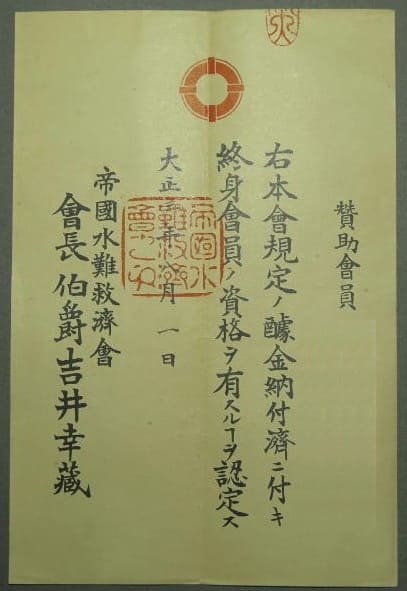 贊助會員
右本會規定ノ醵金納付濟ニ付キ
終身會員ノ資格ヲ有スルヿヲ認定ス
大正 年 月一日
帝國水難救濟會
會長伯爵吉井幸藏